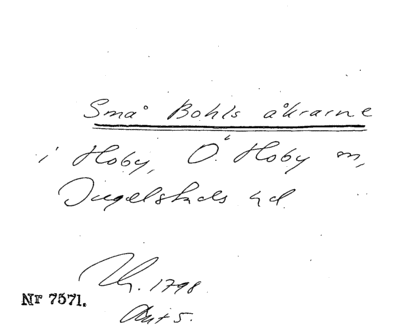 Små Bohls åkrarne
i Hoby, Ö. Hoby sn,
Ingelstads hd.
1798
Akt 5.
Nr 7571.